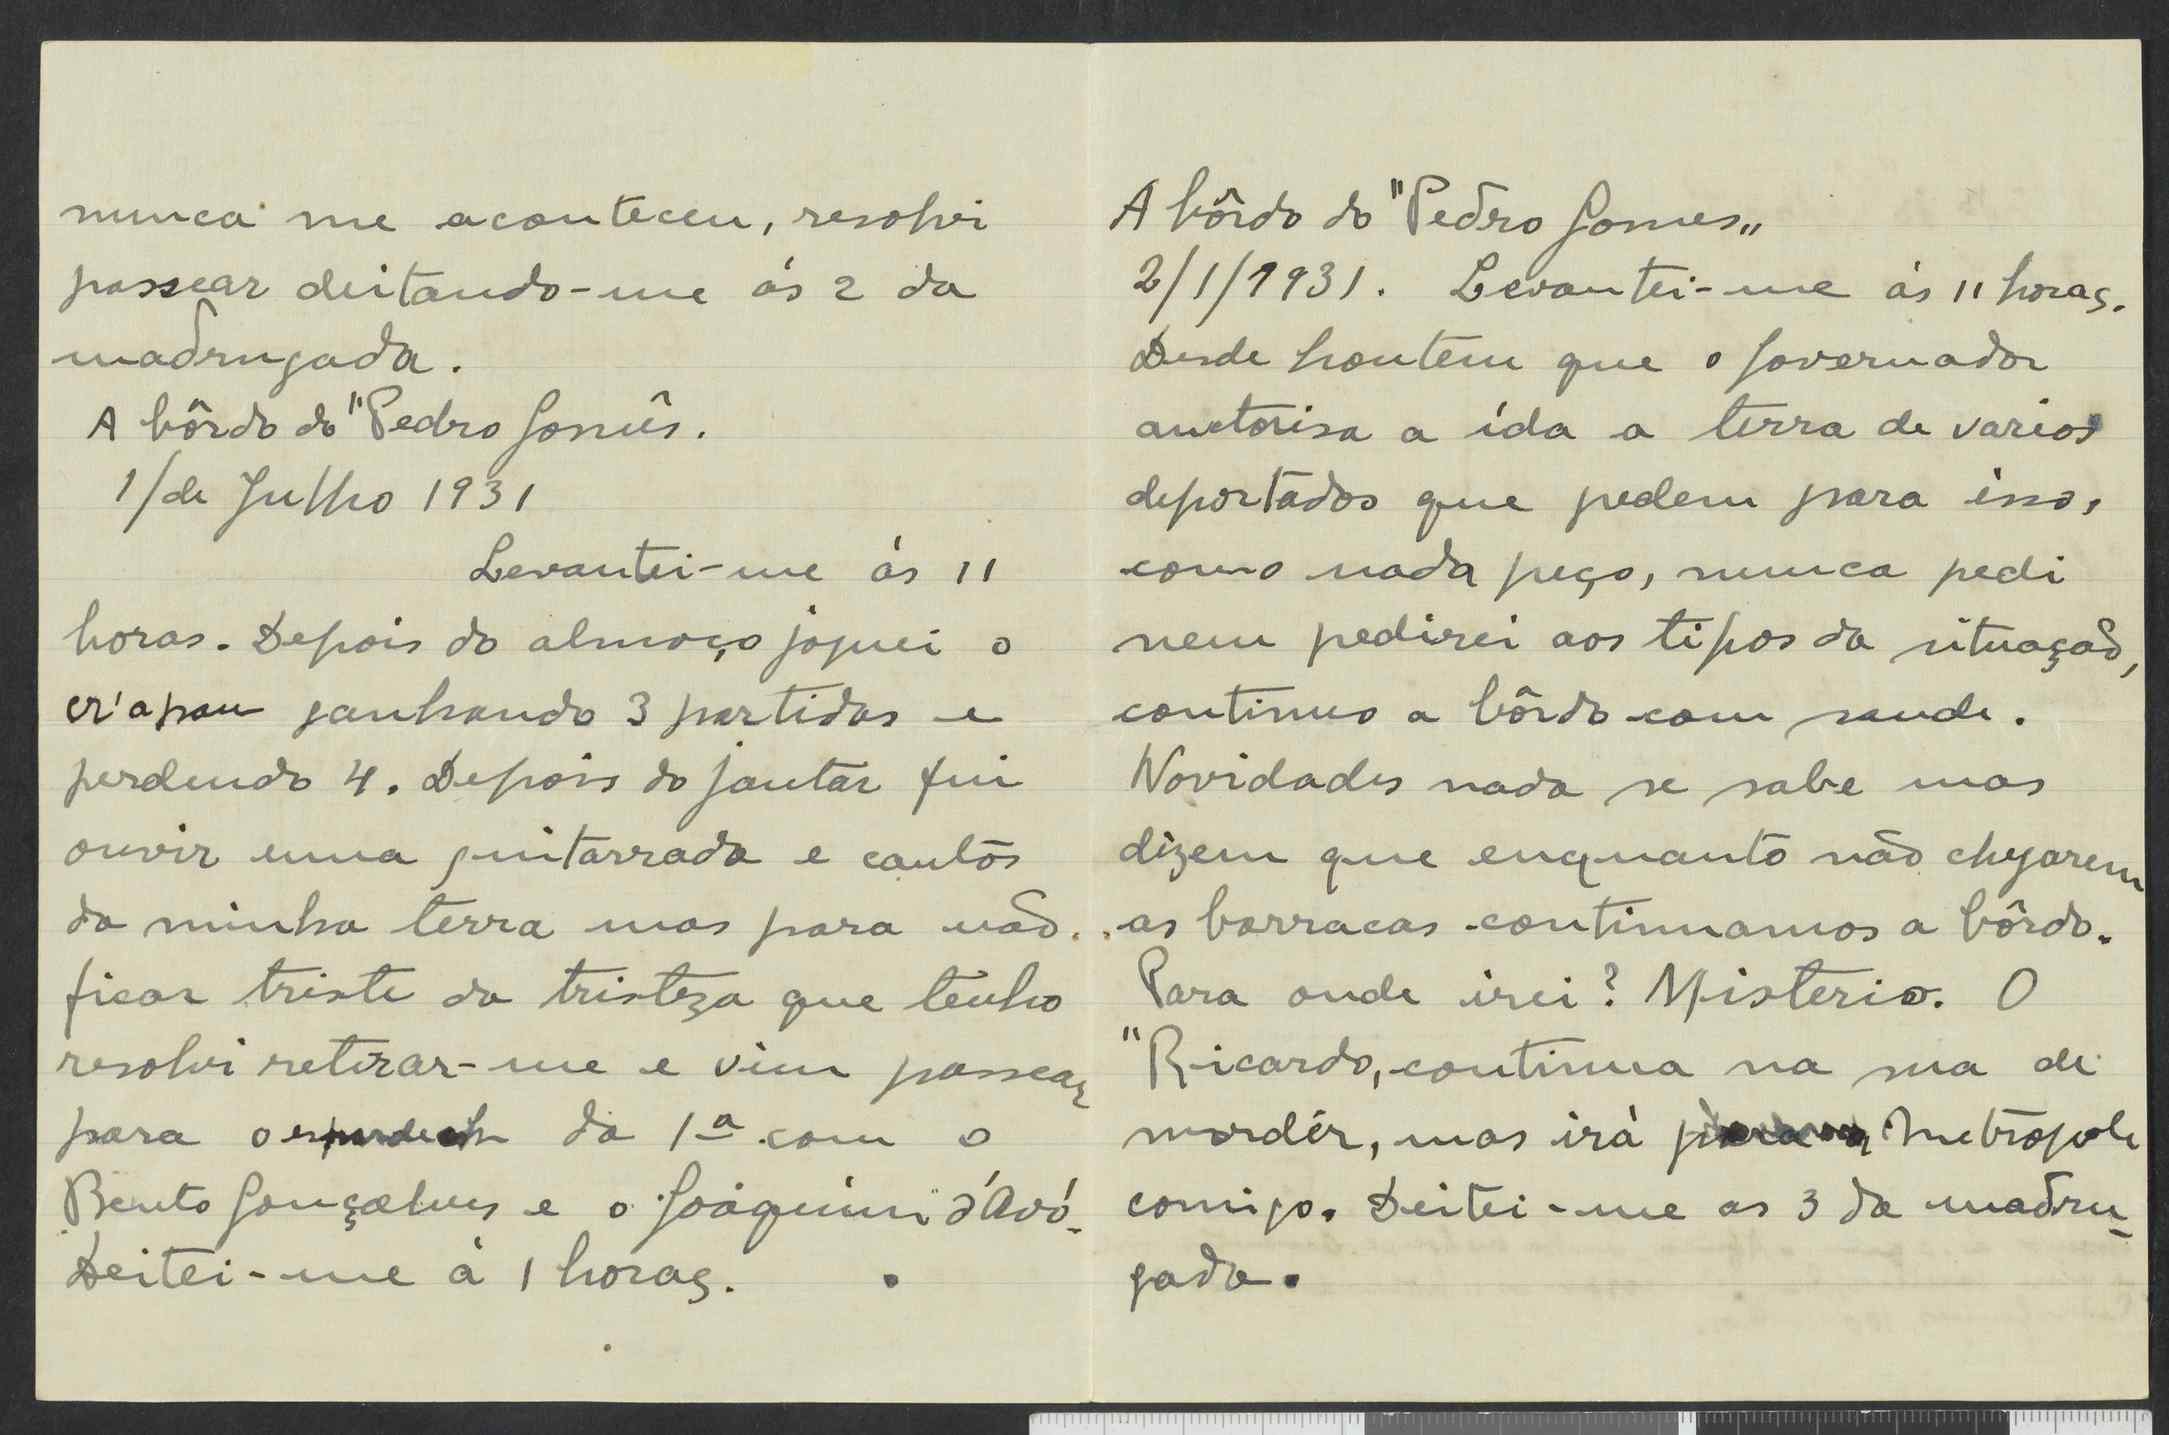 nunca me aconteceu, resolvi
passear deitando-me ás 2 da
madrugada.
A bôrdo do "Pedro Gomês.
1/de Julho 1931
Levantei-me ás 11
horas. Depois do almoço joguei o
ganhando 3 partidas e
perdendo 4. Depois do jantar fui
ouvir uma guitarrada e cantos
da minha terra mas para não
ficar triste da tristeza que tenho
resolvi retirar-me e vim passear
para o da 1ª com o
Bento Gonçalves e o Joaquim d'Avó.
Deitei-me á 1 horas.
A bôrdo do "Pedro Gomes„
2/1/1931. Levantei-me ás 11 horas.
Desde hontem que o Governador
auctorisa a ida a terra de varios
deportados que pedem para isso,
como nada peço, nunca pedi
nem pedirei aos tipos da situação,
continuo a bôrdo com saude.
Novidades nada se sabe mas
dizem que enquanto não chegarem
as barracas continuamos a bôrdo.
Para onde irei? Misterio. O
"Ricardo, continua na sua de
mordêr, mas irá para a Metropole
comigo. Deitei-me as 3 da madru-
gada.